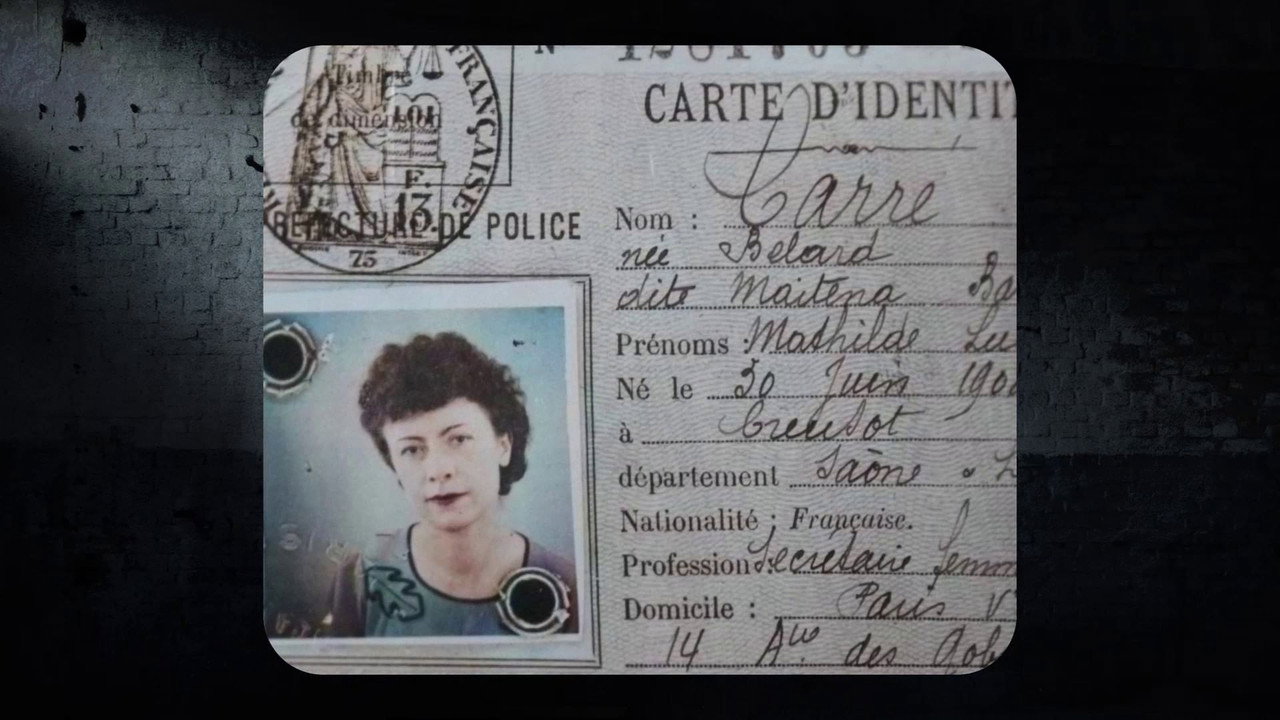 N
CARTE D'IDENTI
FRANÇAISE
Timbre
de dimension
F.
13
PRÉFECTURE DE POLICE
75
Nom : Carre
née Belard
dite Maitena Ba
Prénoms : Mathilde Lu
Né le 30 Juin 190
à Creusot
département Saône & L
Nationalité : Française.
Profession : Secrétaire femm
Domicile : Paris V
14 Aue des Gob